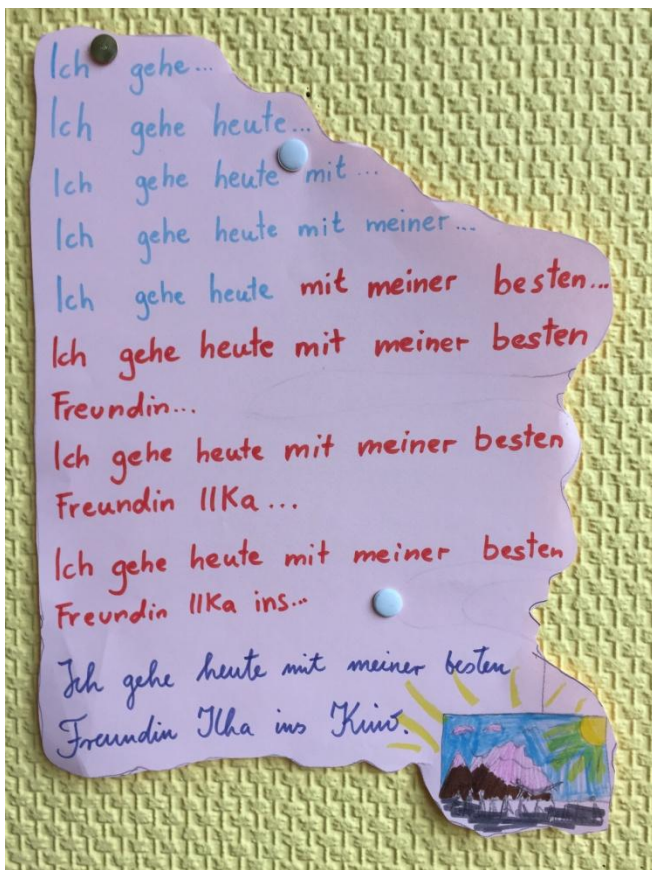 Ich gehe...
Ich gehe heute...
Ich gehe heute mit...
Ich gehe heute mit meiner...
Ich gehe heute mit meiner besten...
Ich gehe heute mit meiner besten
Freundin...
Ich gehe heute mit meiner besten
Freundin Ilka...
Ich gehe heute mit meiner besten
Freundin Ilka ins...
Ich gehe heute mit meiner besten
Freundin Ilka ins Kino.